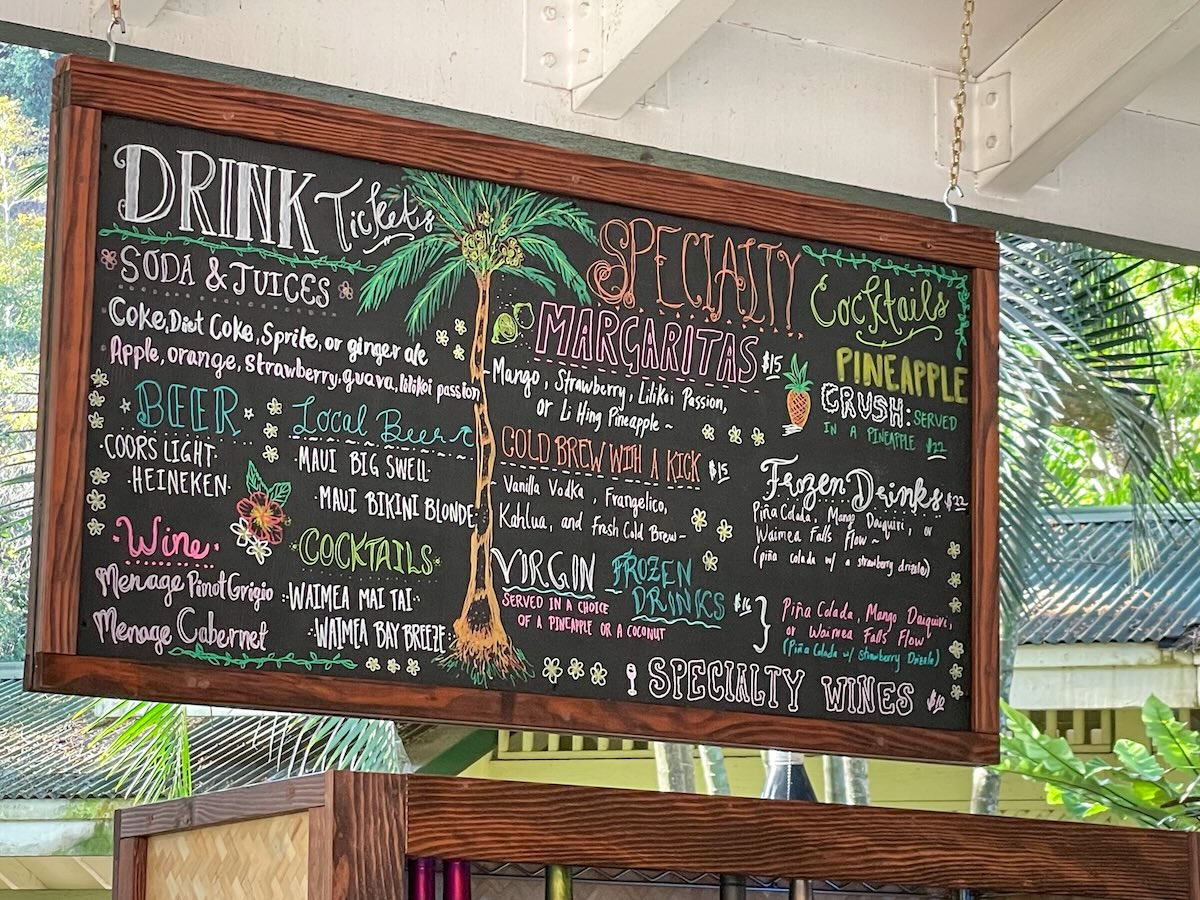 DRINK Tickets
SODA & JUICES
Coke, Diet Coke, Sprite, or ginger ale
Apple, orange, strawberry, guava, lilikoi passion
BEER
·COORS LIGHT·
·HEINEKEN·
Local Beer
·MAUI BIG SWELL·
·MAUI BIKINI BLONDE
·Wine·
Menage Pinot Grigio
Menage Cabernet
·COCKTAILS·
·WAIMEA MAI TAI·
·WAIMEA BAY BREEZE·
SPECIALTY Cocktails
MARGARITAS $15
Mango, Strawberry, Lilikoi Passion,
or Li Hing Pineapple ~
COLD BREW WITH A KICK $15
Vanilla Vodka, Frangelico,
Kahlua, and Fresh Cold Brew~
VIRGIN FROZEN DRINKS
SERVED IN A CHOICE
OF A PINEAPPLE OR A COCONUT
Piña Colada, Mango Daiquiri,
or Waimea Falls Flow
(Piña Colada w/ Strawberry Drizzle)
PINEAPPLE
CRUSH: SERVED
IN A PINEAPPLE $22
Frozen Drinks $22
Piña Colada, Mango Daiquiri, or
Waimea Falls Flow ~
(piña colada w/ a strawberry drizzle)
SPECIALTY WINES